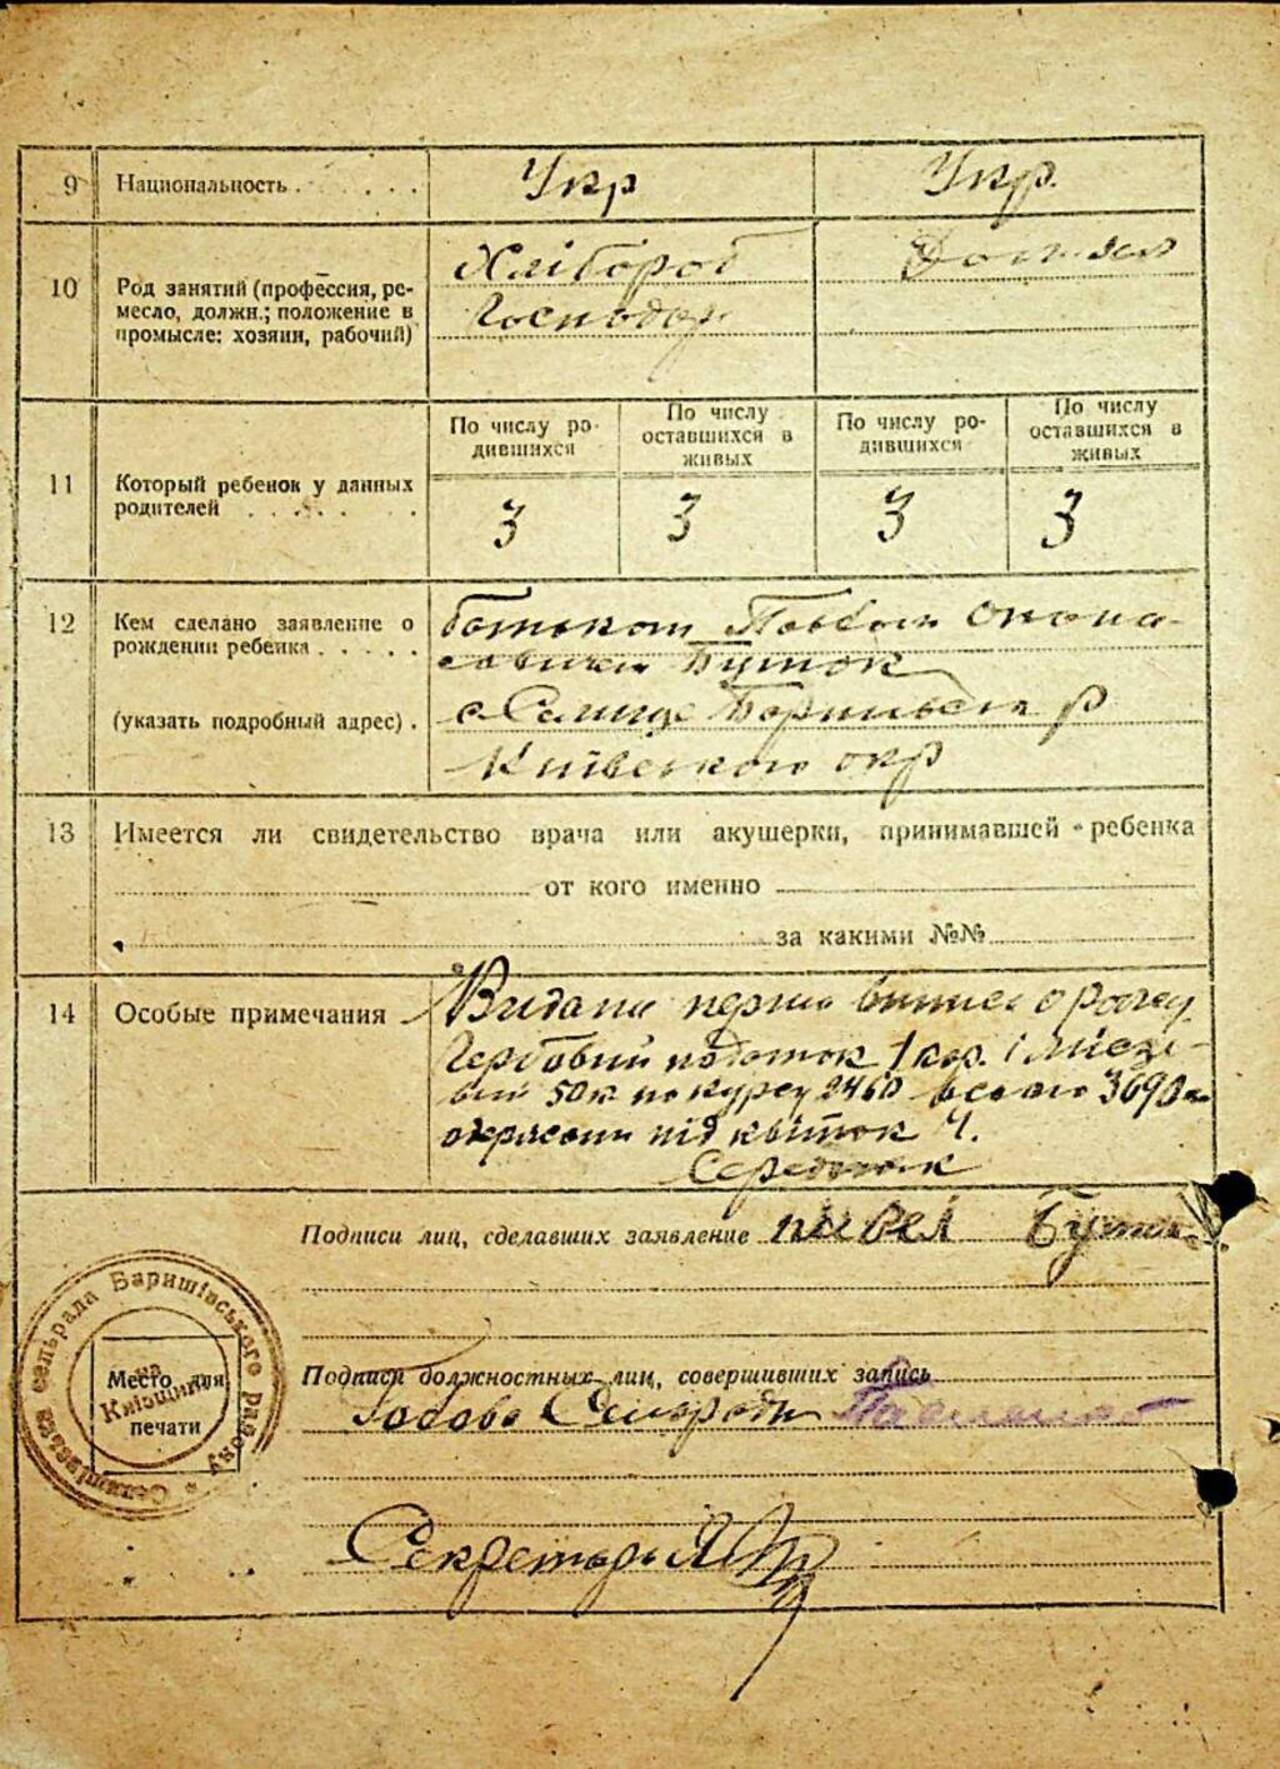 9 Национальность . . . . . Укр Укр.
10 Род занятий (профессия, ре-
месло, должн.; положение в
промысле: хозяин, рабочий)
Хлібороб
Господар
11 Который ребенок у данных
родителей . . . . .
По числу ро-
дившихся
По числу
оставшихся в
живых
По числу ро-
дившихся
По числу
оставшихся в
живых
3 3 3 3
12 Кем сделано заявление о
рождении ребенка . . . . .
(указать подробный адрес) .
батьком Павлом Опана-
совичем Буток
с Селище Баришівськ р
Київського окр
13 Имеется ли свидетельство врача или акушерки, принимавшей ребенка
от кого именно
за какими №№
14 Особые примечания
Видани перша випись о
Гербовий податок 1 кар. і місце-
вий 50 к по курсу 2460 всього 3690
під квіток 4.
Подписи лиц, сделавших заявление павел
Подписи должностных лиц, совершивших запись
Голова Сельради
Секретарь
Селищівська сельрада Баришівського району
на Київщині
Место для
печати